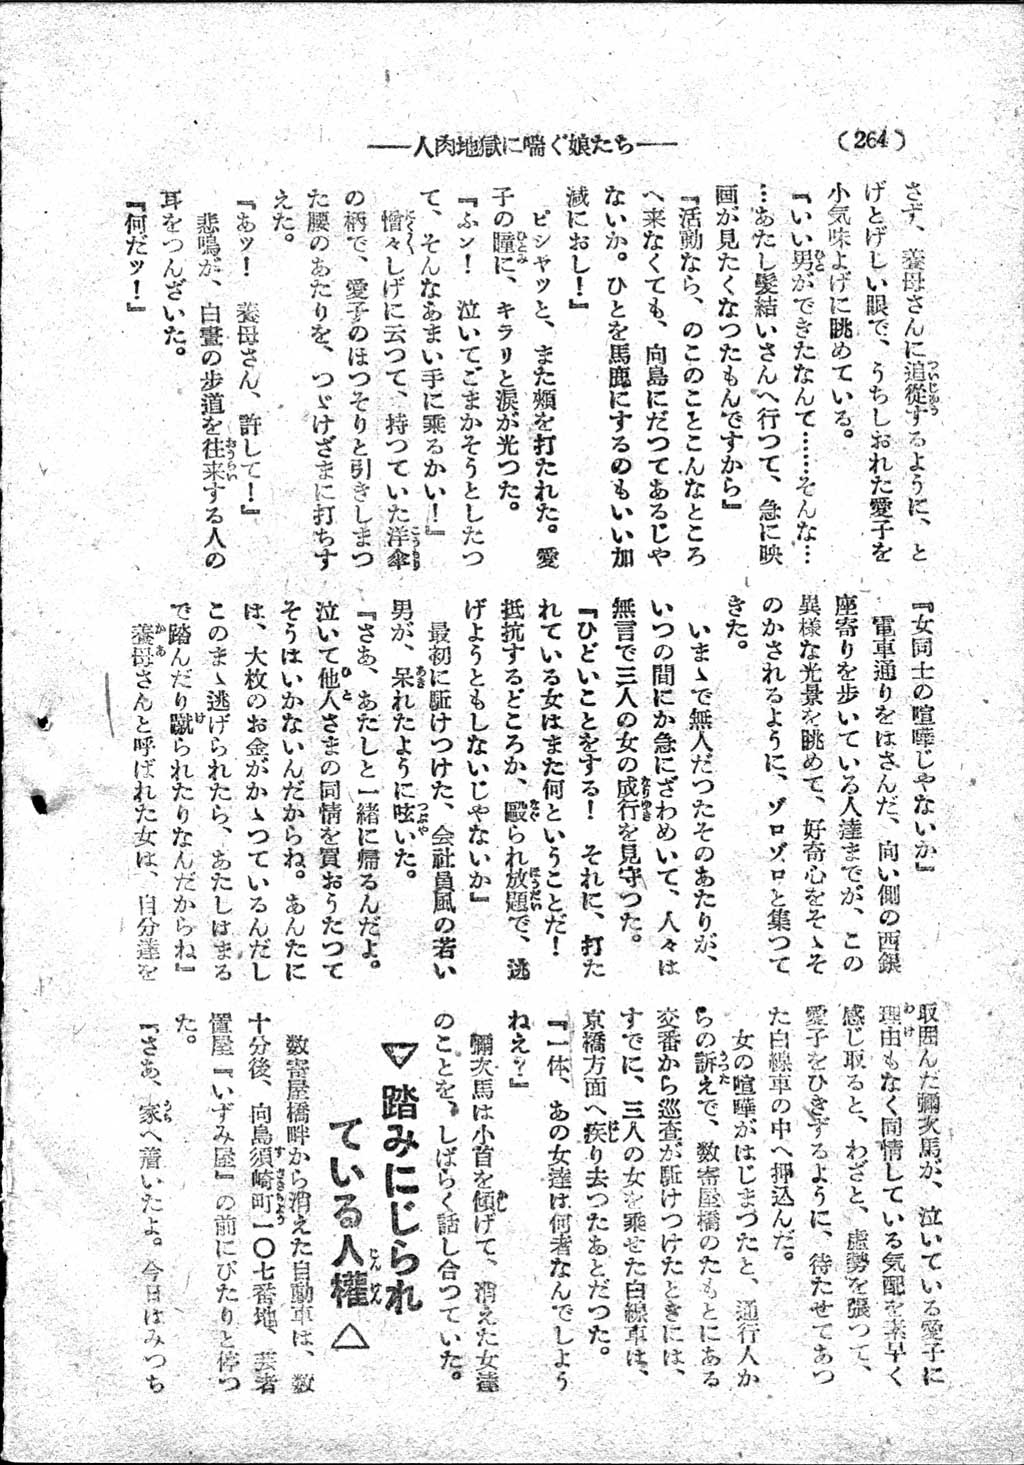 (264)
――人肉地獄に喘ぐ娘たち――
さず、養母さんに追從するように、と
げとげしい眼で、うちしおれた愛子を
小気味よげに眺めている。
『いい男ができたなんて……そんな…
…あたし髪結いさんへ行つて、急に映
画が見たくなつたもんですから』
『活動なら、のこのことこんなところ
へ来なくても、向島にだつてあるじや
ないか。ひとを馬鹿にするのもいい加
減におし！』
ピシヤツと、また頰を打たれた。愛
子の瞳に、キラリと涙が光つた。
『ふン！　泣いてごまかそうとしたつ
て、そんなあまい手に乗るかい！』
憎々しげに云つて、持つていた洋傘
の柄で、愛子のほつそりと引きしまつ
た腰のあたりを、つゞけざまに打ちす
えた。
『あッ！　養母さん、許して！』
悲鳴が、白晝の歩道を往来する人の
耳をつんざいた。
『何だッ！』
『女同士の喧嘩じゃないか』
電車通りをはさんだ、向い側の西銀
座寄りを歩いている人達までが、この
異様な光景を眺めて、好奇心をそゝそ
のかされるように、ゾロゾロと集つて
きた。
いまゝで無人だつたそのあたりが、
いつの間にか急にざわめいて、人々は
無言で三人の女の成行を見守つた。
『ひどいことをする！　それに、打た
れている女はまた何ということだ！
抵抗するどころか、毆られ放題で、逃
げようともしないじゃないか』
最初に駈けつけた、会社員風の若い
男が、呆れたように呟いた。
『さあ、あたしと一緒に帰るんだよ。
泣いて他人さまの同情を買おうたつて
そうはいかないんだからね。あんたに
は、大枚のお金がかゝつているんだし
このまゝ逃げられたら、あたしはまる
で踏んだり蹴られたりなんだからね』
養母さんと呼ばれた女は、自分達を
取囲んだ彌次馬が、泣いている愛子に
理由もなく同情している気配を素早く
感じ取ると、わざと、虚勢を張つて、
愛子をひきずるように、待たせてあつ
た白線車の中へ押込んだ。
女の喧嘩がはじまつたと、通行人か
らの訴えで、数寄屋橋のたもとにある
交番から巡査が駈けつけたときには、
すでに、三人の女を乘せた白線車は、
京橋方面へ疾り去つたあとだつた。
『一体、あの女達は何者なんでしよう
ねえ？』
彌次馬は小首を傾げて、消えた女達
のことを、しばらく話し合つていた。
▽ 踏みにじられ
ている人權 △
数寄屋橋畔から消えた自動車は、数
十分後、向島須崎町一〇七番地、芸者
置屋『いずみ屋』の前にぴたりと停つ
た。
『さあ、家へ着いたよ。今日はみつち